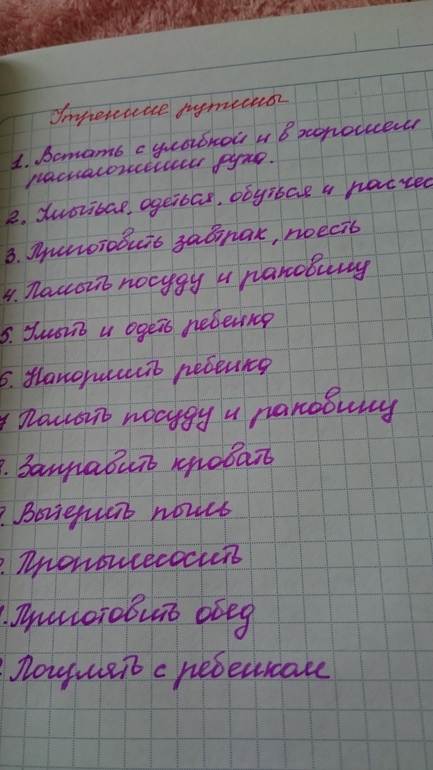 Утренние рутины
1. Встать с улыбкой и в хорошем
расположении духа.
2. Умыться, одеться, обуться и расчес
3. Приготовить завтрак, поесть
4. Помыть посуду и раковину
5. Умыть и одеть ребенка
6. Накормить ребенка
7 Помыть посуду и раковину
8. Заправить кровать
9. Вытереть пыль
0. Пропылесосить
1. Приготовить обед
2 Погулять с ребенком